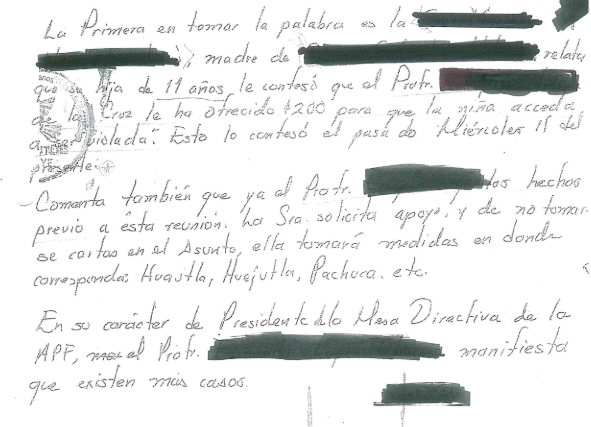 La Primera en tomar la palabra es la
madre de relata
que su hija de 11 años, le confesó que el Profr.
de la Cruz le ha ofrecido $200 para que la niña acceda
a ser violada". Esto lo confesó el pasado Miércoles 11 del
presente.
Comenta también que ya el Profr. los hechos
previo a ésta reunión. La Sra. solicita apoyo, y de no tomar-
se cartas en el Asunto, ella tomará medidas en donde
corresponda: Huautla, Huejutla, Pachuca. etc.
En su carácter de Presidente de la Mesa Directiva de la
APF, el Profr. manifiesta
que existen más casos.